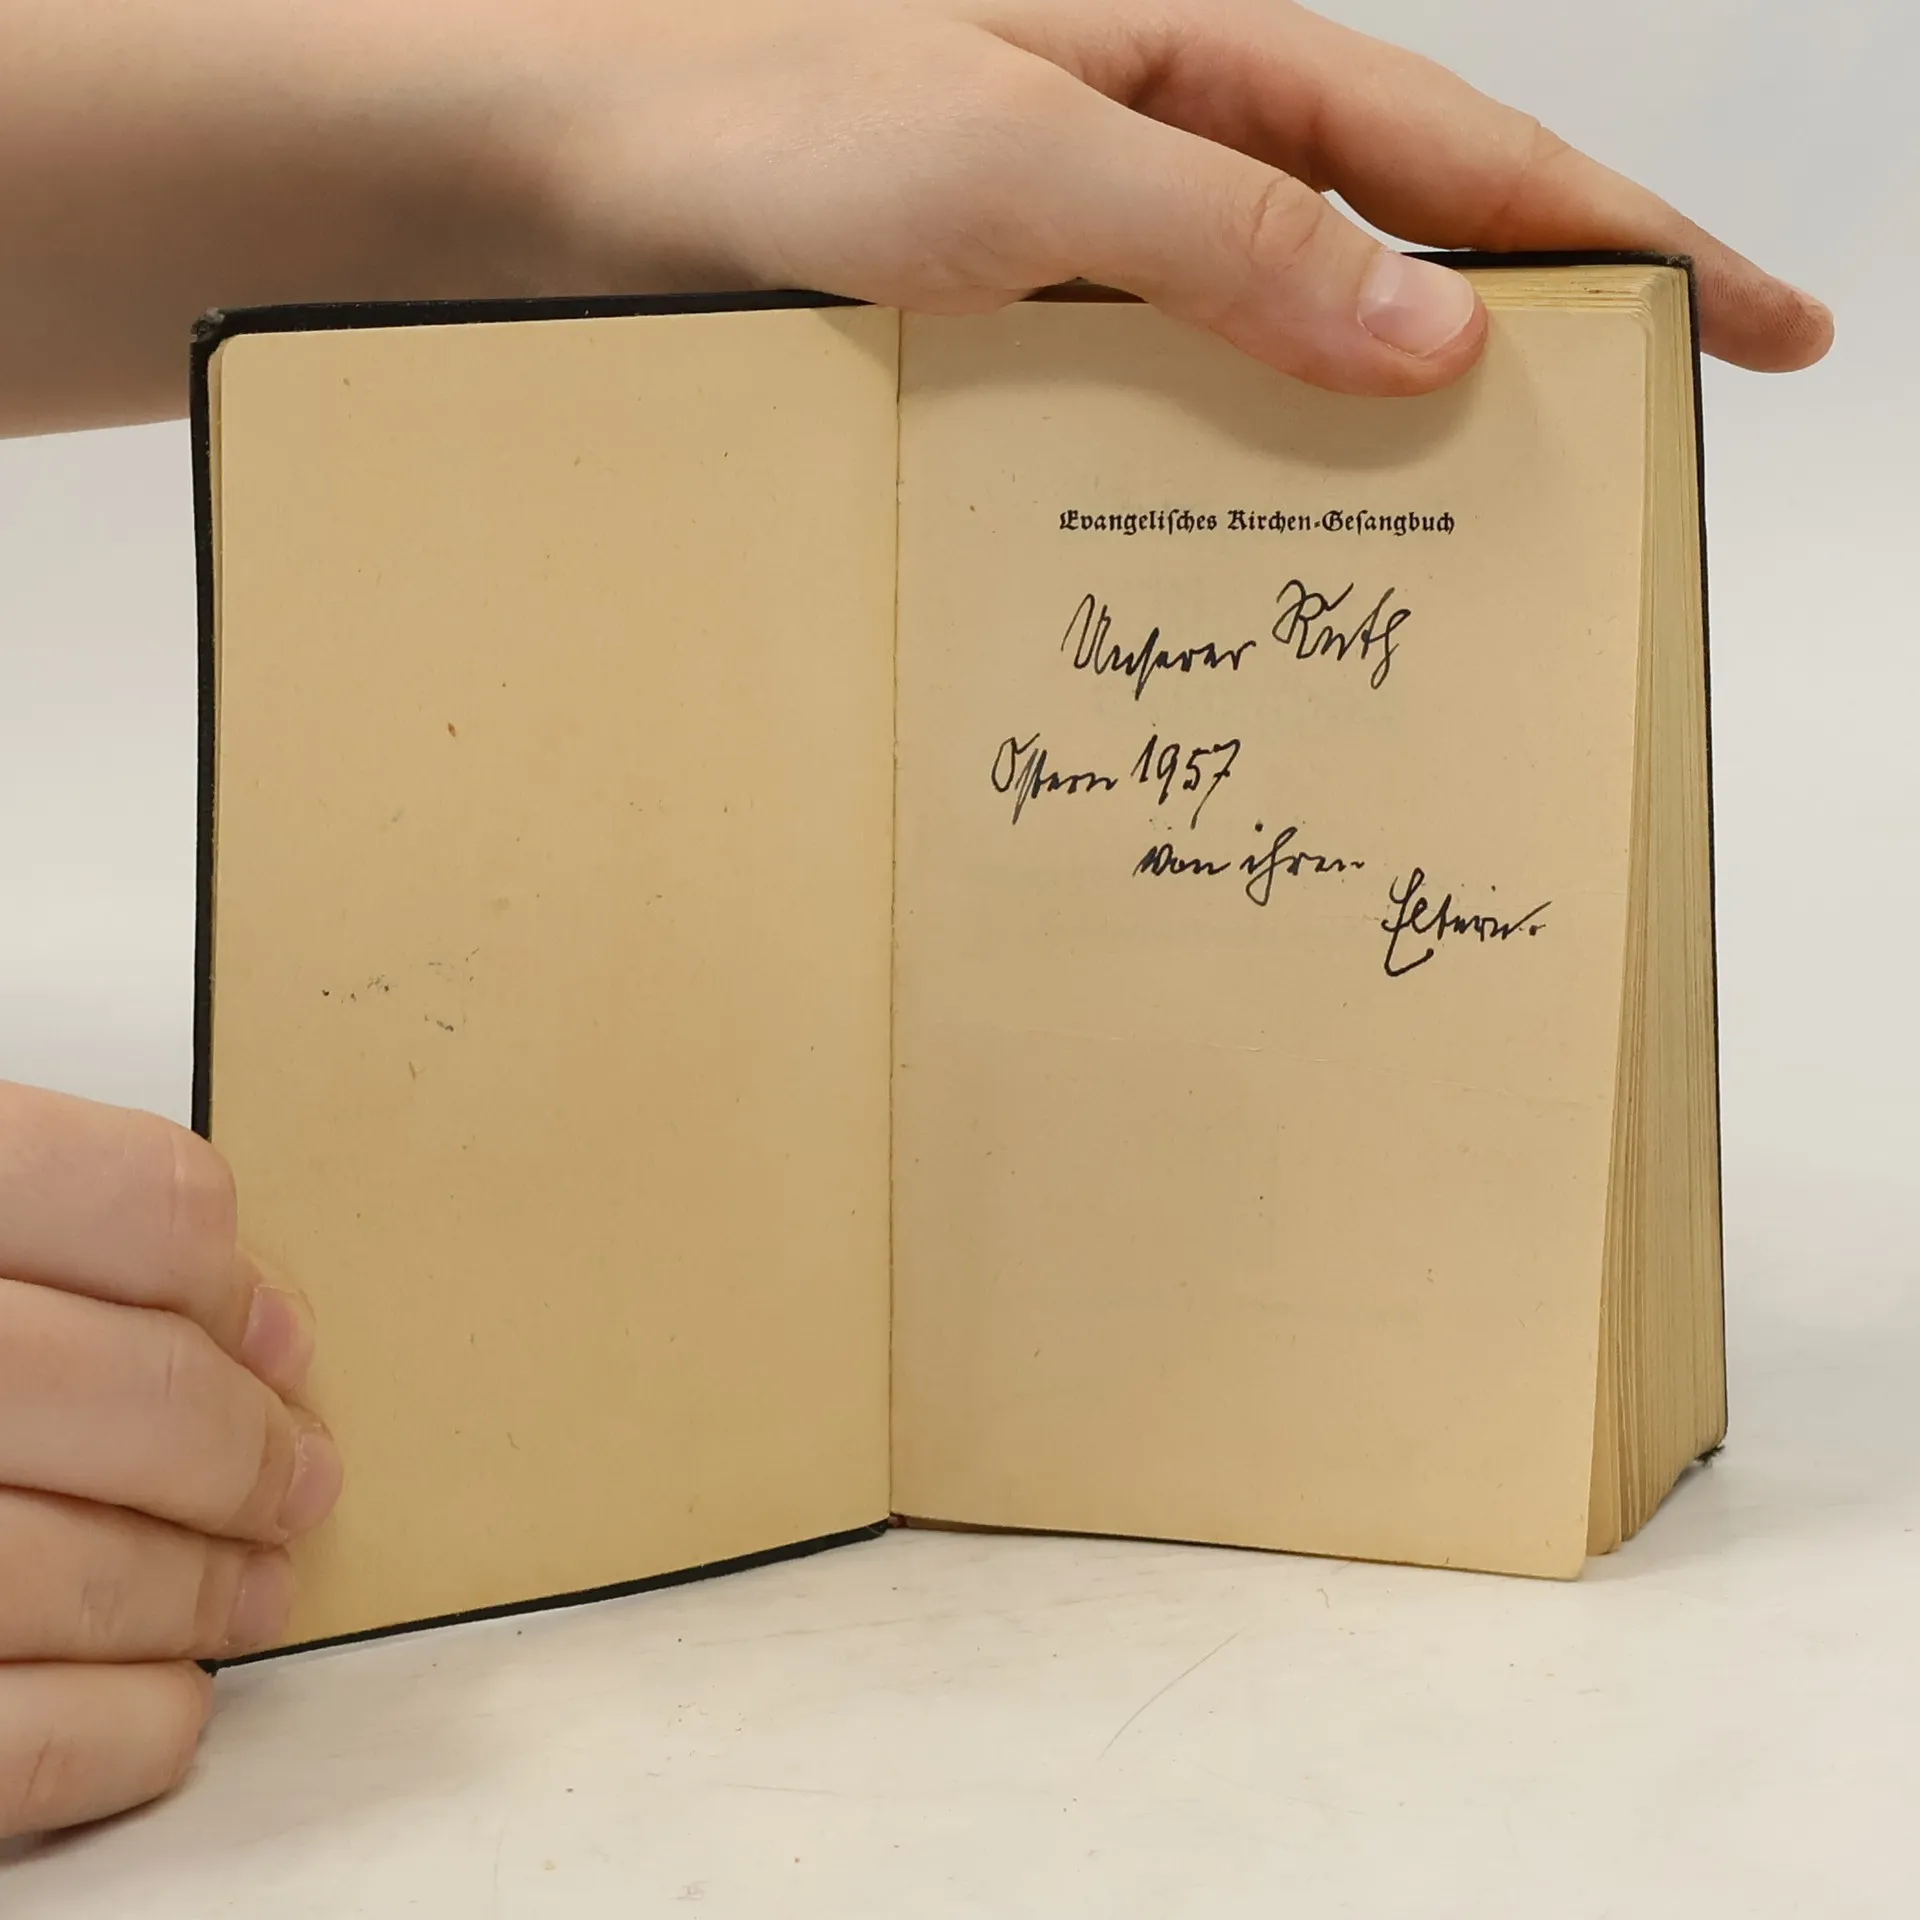 Evangelisches Kirchen-Gesangbuch
Unserer Ruth
Ostern 1957
von ihren
Eltern.